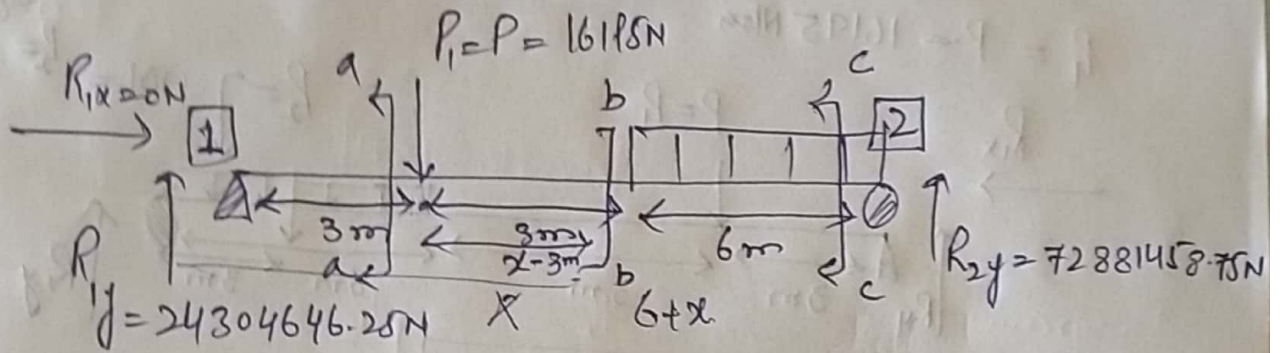 P₁=P= 16195N
R₁x=0N
a
b
c
1
2
3m
3m
x-3m
6m
a
b
c
R₁y=24304646.25N
x
6+x
R₂y=72881458.75N